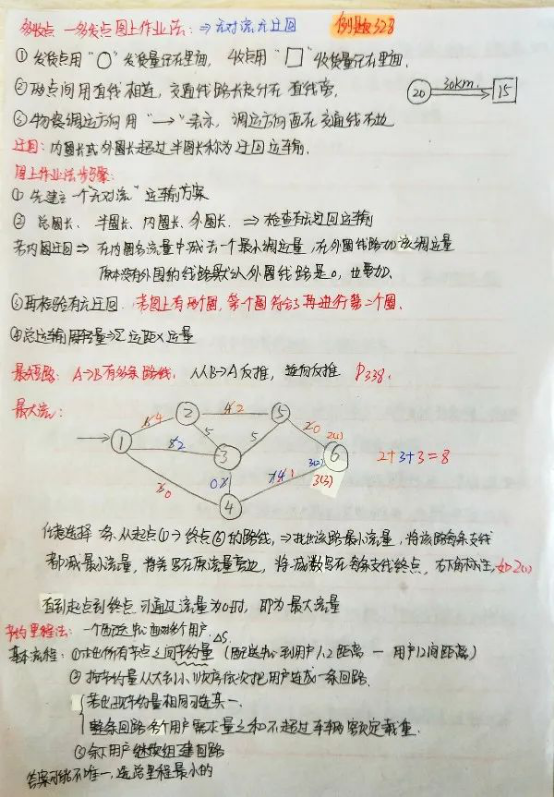 多收点 一多发点图上作业法: ⇒ 无对流无迂回 例题328
① 发货点用 "○" 发货量记在里面, 收点用 "□" 收货量记在里面.
② 两点间用直线相连, 交通线路长度分在直线旁.
⑳ 30km 15
③ 物资调运方向用 "→" 表示, 调运方向画在交通线右边
迂回: 内圈长或外圈长超过半圈长称为迂回运输.
图上作业法步骤:
① 先建立一个"无对流"运输方案
② 总圈长、半圈长、内圈长、外圈长. ⇒ 检查有无迂回运输
若内圈迂回 ⇒ 在内圈各流量中减去一个最小调运量, 在外圈线路加该调运量
原本没有外圈的线路默认外圈线路是0, 也要加.
③ 再检验有无迂回. 若图上有两个圈, 第一个圈符合了再进行第二个圈.
④ 总运输周转量 ⇒ Σ运距×运量
最短路: A→B有多条路线, 从B→A反推, 逆向反推 P338.
最大流:
① ② ③ ④ ⑤ ⑥
5 5
2(2) 3(2) 3(3)
2+3+3=8
任意选择一条从起点①→终点⑥的路线, ⇒ 找出该路最小流量, 将该路每条支线
都减最小流量, 将差写在原流量旁边, 将减数写在每条支线终点, 右下角标注, 如2(1)
直到起点到终点可通过流量为0时, 即为最大流量
节约里程法: 一个配送中心面对多个用户
基本流程: ① 求出所有节点之间节约量 ΔS (配送中心到用户1.2距离 — 用户12间距离)
② 按节约量从大到小顺序依次把用户连成一条回路.
若出现节约量相同可选其一.
整条回路各个用户需求量之和不超过车辆额定载重.
③ 余下用户继续组建回路
答案可能不唯一, 选总里程最小的